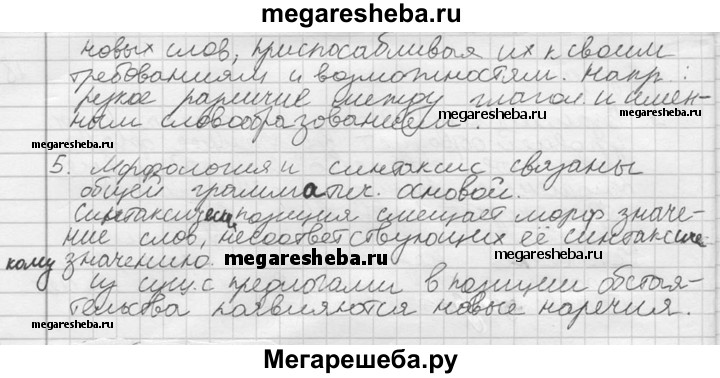 megaresheba.ru
новых слов, приспосабливая их к своим
требованиям и возможностям. Напр.:
резкое различие между глагол. и имен-
megaresheba.ru megaresheba.ru
ным словообразованием.
megaresheba.ru
5. Морфология и синтаксис связаны
общей грамматич. основой.
Синтаксическ позиция смещает морф. значе-
ние слов, несоответствующих её синтаксиче-
кому значению.
megaresheba.ru megaresheba.ru
Из сущ. с предлогами в позиции обстоя-
тельства появляются новые наречия.
megaresheba.ru megaresheba.ru
Мегарешеба.ру